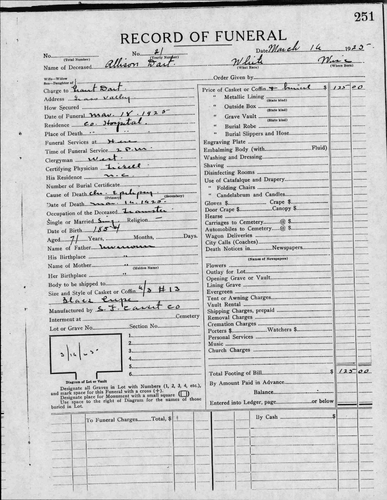 251
RECORD OF FUNERAL
No. No. 21 Date March 16 1925
(Total Number) (Yearly Number)
Name of Deceased Allison Dart White Wisc
(What Race) (Where Born)
Order Given by
Charge to Grant Dart
Address Grass Valley
How Secured
Date of Funeral Mar. 18, 1925
Residence Co. Hospital
Place of Death "
Funeral Services at Here
Time of Funeral Service 2 P.M.
Clergyman West
Certifying Physician
His Residence N.C.
Number of Burial Certificate
Cause of Death Chr. Epilepsy
Date of Death Mar. 16, 1925
Occupation of the Deceased Teamster
Single or Married Sing Religion
Date of Birth 1854
Aged 71 Years, Months, Days.
Name of Father Unknown
His Birthplace "
Name of Mother "
(Maiden Name)
Her Birthplace "
Body to be shipped to
Size and Style of Casket or Coffin 6/3 #13
Black Crepe
Manufactured by S.F. Casket Co
Interment at Cemetery
Lot or Grave No. Section No.
1.
2.
3.
4.
5.
6.
Diagram of Lot or Vault
Designate all Graves in Lot with Numbers (1, 2, 3, 4, etc.),
and mark space for this Funeral with a cross (+).
Designate place for Monument with a small square
Use space to the right of Diagram for the names of those
buried in Lot.
Price of Casket or Coffin & Burial $ 135.00
" Metallic Lining
(State kind)
" Outside Box
(State kind)
" Grave Vault
(State kind)
" Burial Robe
(State kind)
" Burial Slippers and Hose
Engraving Plate
Embalming Body (with Fluid)
Washing and Dressing
Shaving
Disinfecting Rooms
Use of Catafalque and Drapery
" Folding Chairs
" Candelabrum and Candles
Gloves $ Crape $
Door Crape $ Canopy $
Hearse
Carriages to Cemetery @ $
Automobiles to Cemetery @ $
Wagon Deliveries
City Calls (Coaches)
Death Notices in Newspapers
(Names of Newspapers)
Flowers
Outlay for Lot
Opening Grave or Vault
Lining Grave
Evergreen
Tent or Awning Charges
Vault Rental
Shipping Charges, prepaid
Removal Charges
Cremation Charges
Porters $ Watchers $
Personal Services
Music
Church Charges
Total Footing of Bill $ 135.00
By Amount Paid in Advance
Balance
Entered into Ledger, page or below.
To Funeral Charges, Total, $ By Cash $